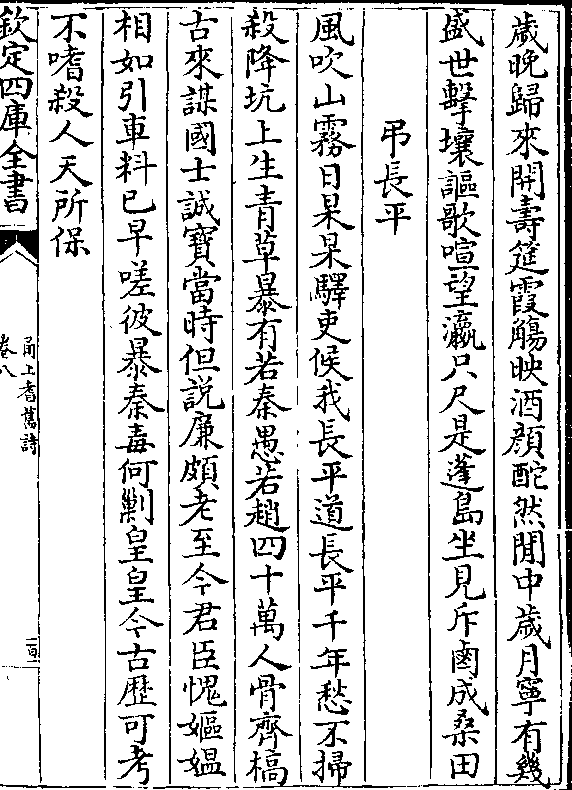 歲晚歸來開壽筵霞觴映酒顔酡然閒中歲月寧有幾
盛世擊壤謳歌喧望瀛只尺是蓬島坐見斥鹵成桑田
弔長平
風吹山霧日杲杲驛吏候我長平道長平千年愁不掃
殺降坑上生青草暴有若秦愚若趙四十萬人骨齊槁
古來謀國士誠寶當時但說廉頗老至今君臣愧嫗媼
相如引車料已早嗟彼暴秦毒何剿皇皇今古歴可考
不嗜殺人天所保
欽定四庫全書
甬上耆舊詩
卷八